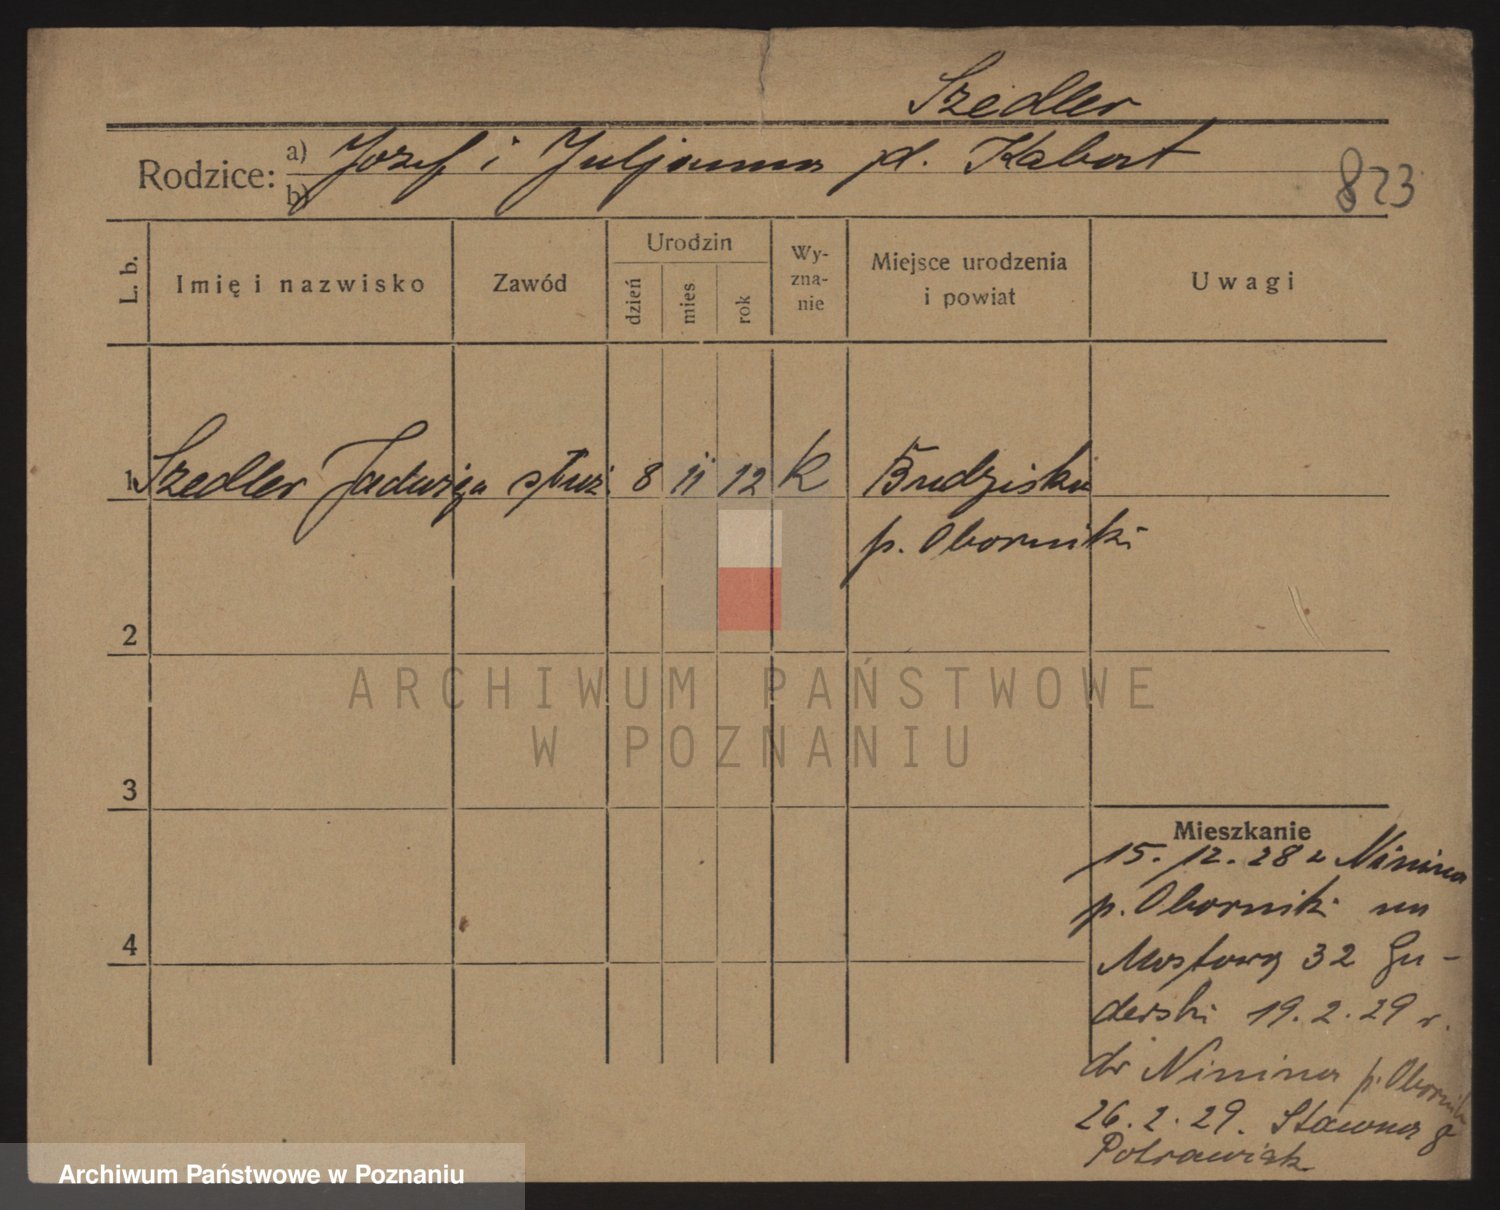 Szedler
Rodzice: a) Józef i Juljanna d. Kabat
b)
823
L. b.
Imię i nazwisko
Zawód
Urodzin
dzień
mies
rok
Wy-
zna-
nie
Miejsce urodzenia
i powiat
Uwagi
1 Szedler Jadwiga służ. 8 11 12 K Budzisku
p. Oborniki
2
ARCHIWUM PAŃSTWOWE
W POZNANIU
3
4
Mieszkanie
15. 12. 28 z Ninina
p. Oborniki na
Mostowa 32 Gu-
derski 19. 2. 29 r.
do Ninina p. Oborniki
26. 2. 29. Stawna 8
Potrawiak
Archiwum Państwowe w Poznaniu